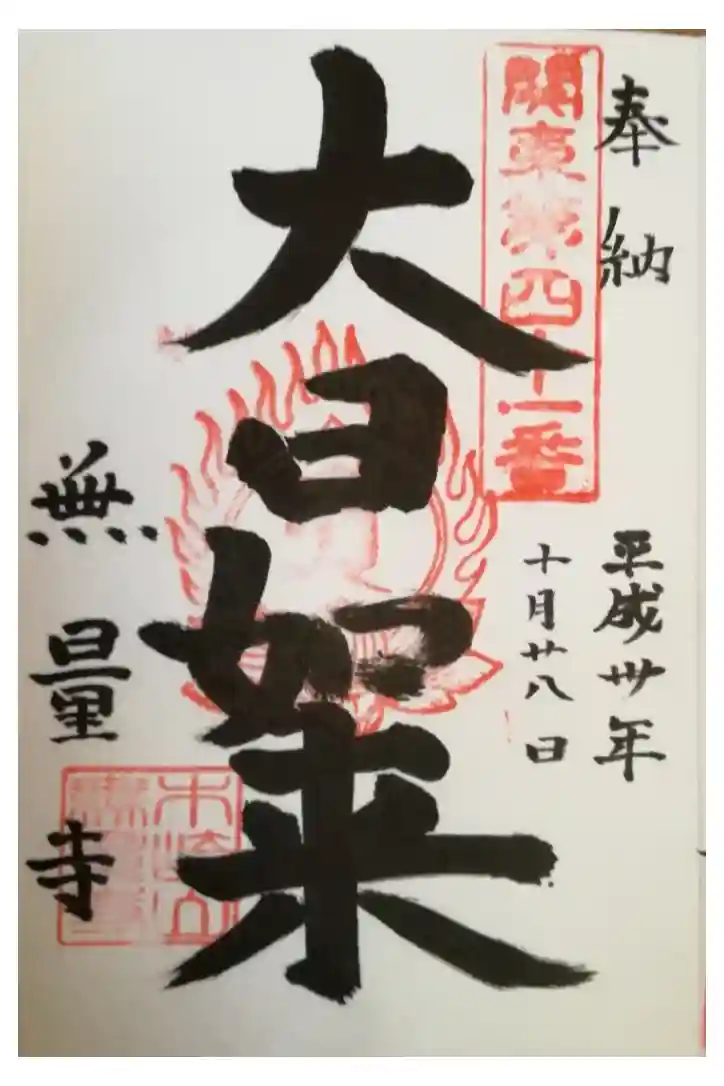 奉納
平成卅年
十月廿八日
関東第四十一番
大日如来
無量寺